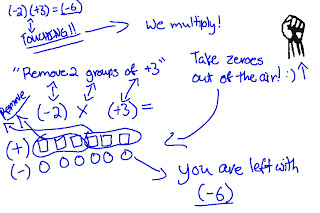 (-2)(+3)=(-6)
TOUCHING!!
We multiply!
"Remove 2 groups of +3"
Take zeroes
out of the air! :)
Remove
(-2) X (+3) =
(+)
(-)
You are left with
(-6)